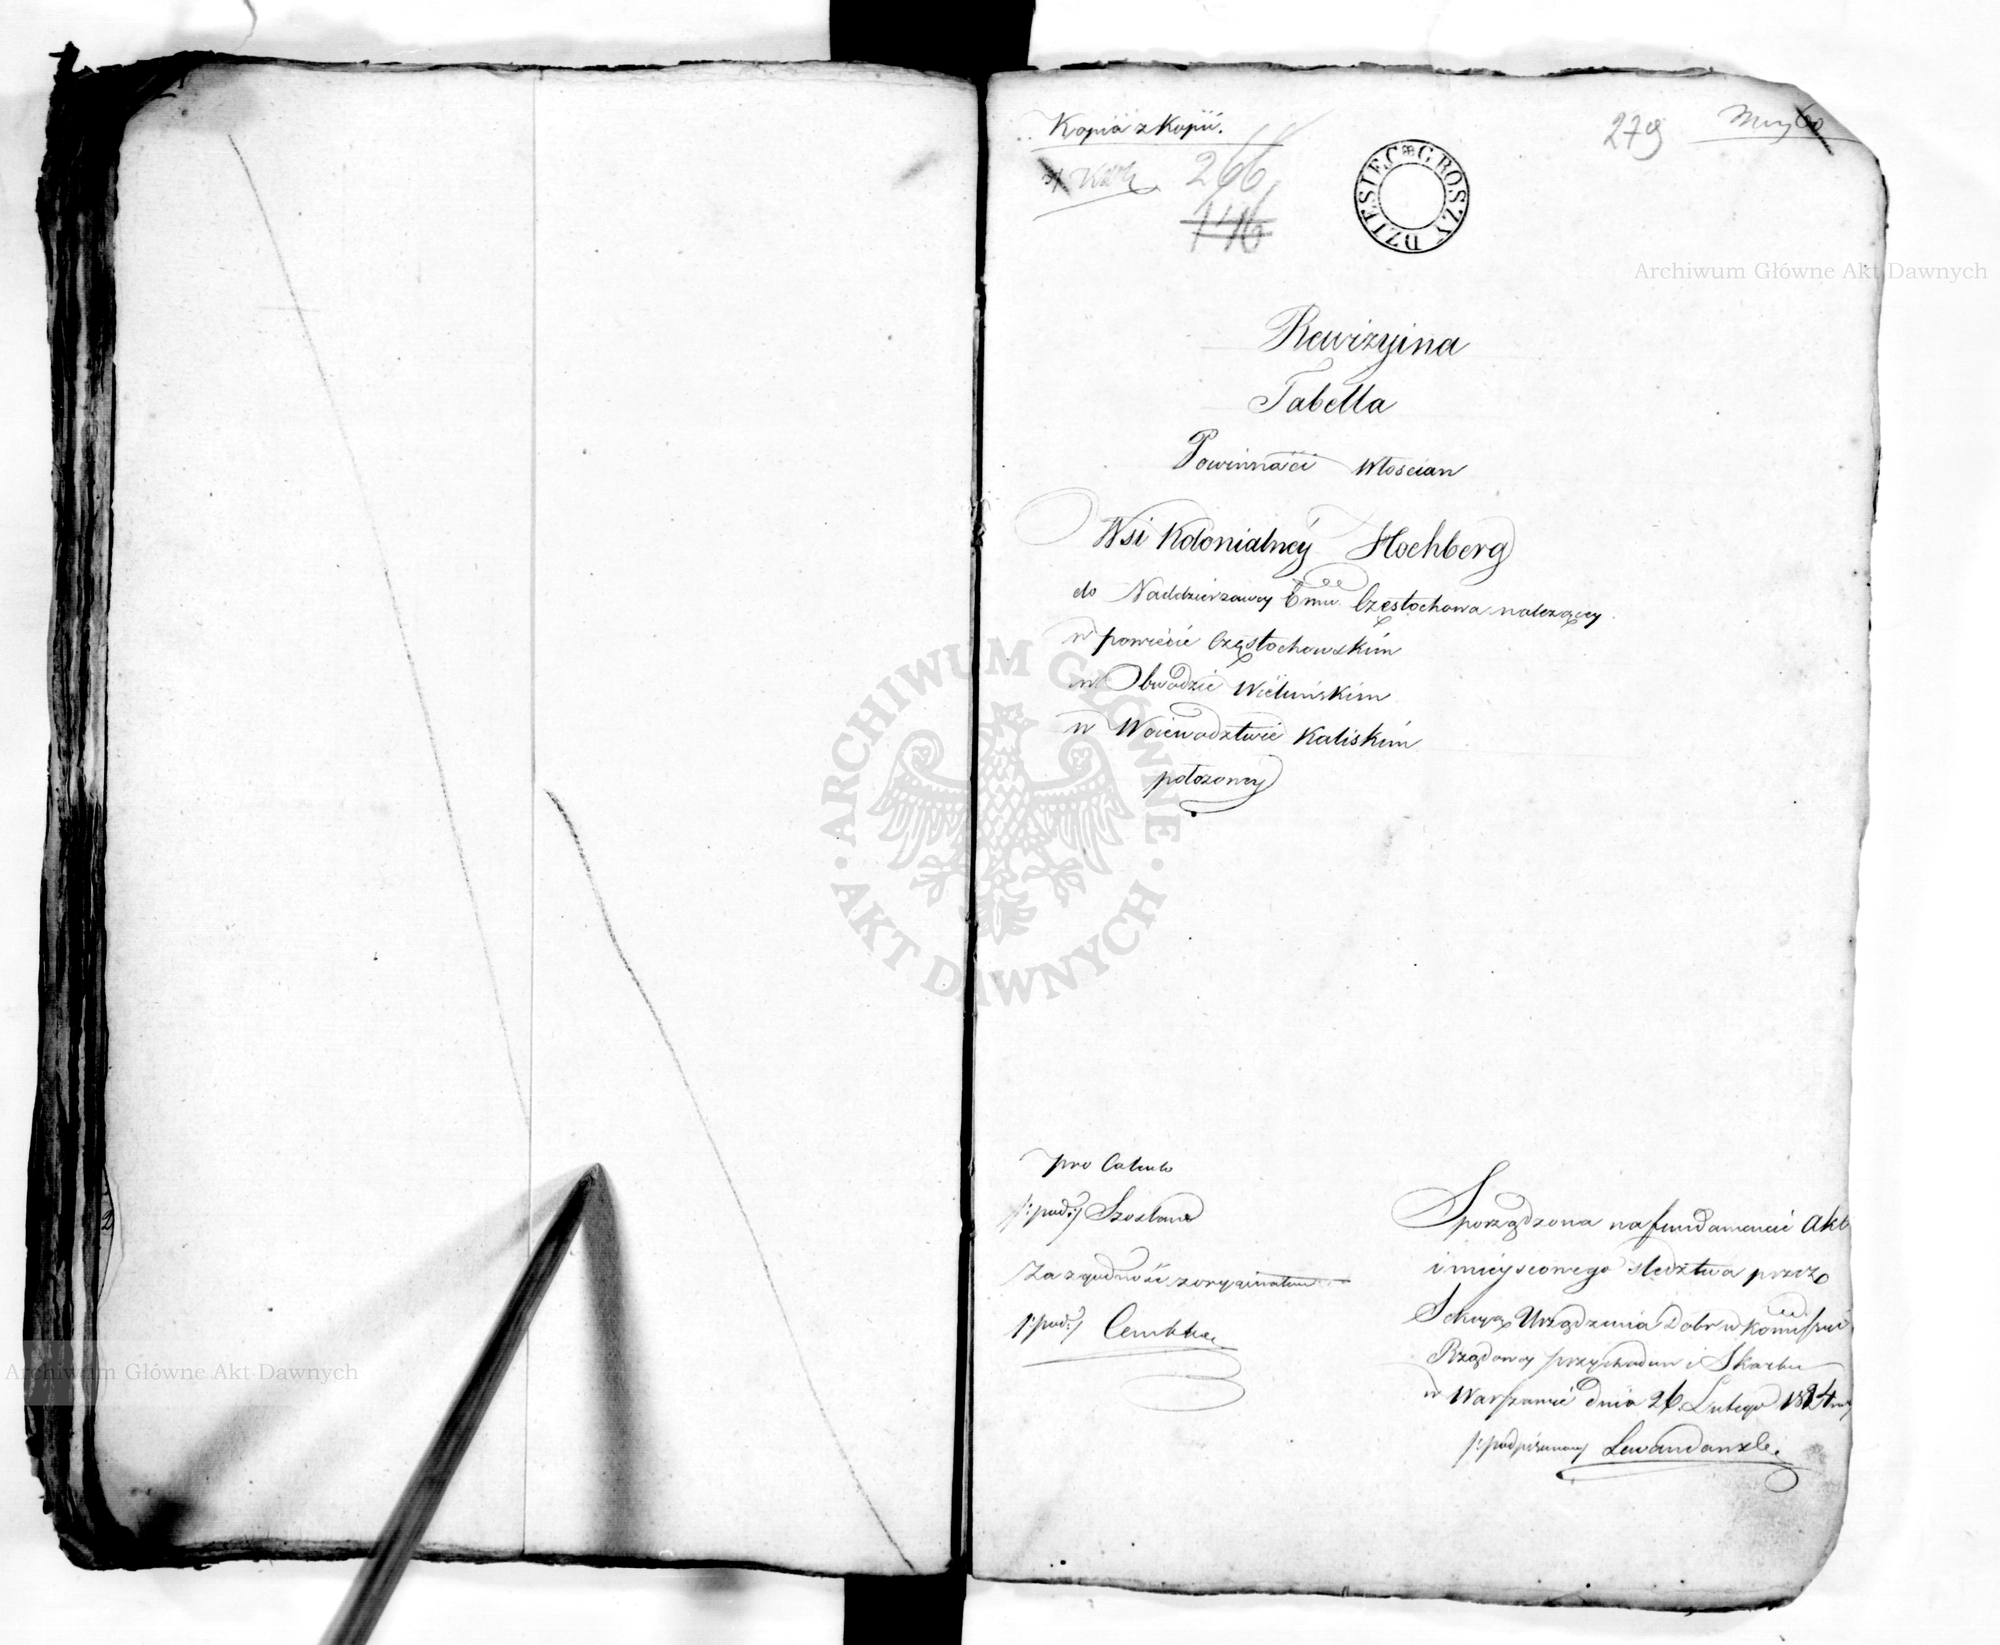 Kopiia z Kopii.
279
266
146
DZIESIEC GROSZY
Archiwum Główne Akt Dawnych
Rewizyina
Tabella
Powinności Włościan
Wsi Kolonialney Hochberg
do Naddzierzawy Częstochowa należącey
w powiecie Częstochowskim
w Obwodzie Wieluńskim
w Woiewodztwie Kaliskim
położoney
ARCHIWUM GŁÓWNE
AKT DAWNYCH
pro Calculo
/:pod:/
Za zgodność z oryginałem
/:pod:/
Sporządzona na fundamencie Akt
i mieyscowego śledztwa przez
Sekcyą Urządzenia Dobr w Kommissyi
Rządowey przychodow i Skarbu
w Warszawie dnia 26 Lutego 1824
/:podpisany/ Lewandowski
2
Archiwum Główne Akt Dawnych